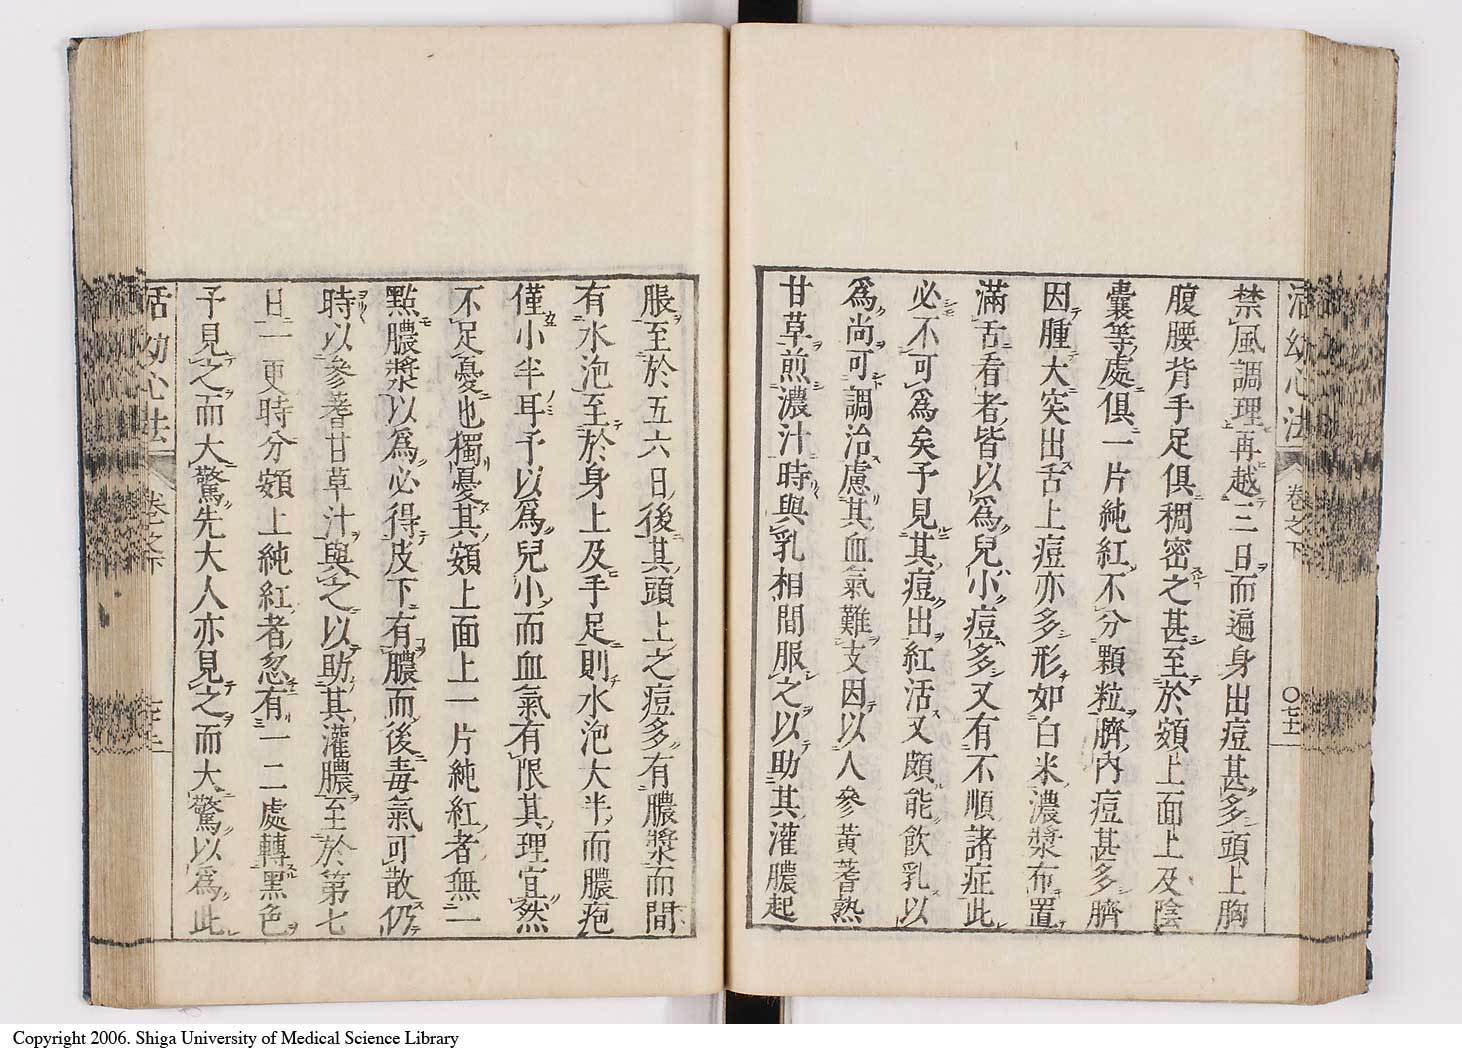 活幼心法 卷之下 〇七十一
禁風調理再越三日而遍身出痘甚多頭上胸
腹腰背手足俱稠密之甚至於頦上面上及陰
囊等處俱一片純紅不分顆粒臍內痘甚多臍
因腫大突出舌上痘亦多形如白米濃漿布置
滿舌看者皆以爲兒小痘多又有不順諸症此
必不可爲矣予見其痘出紅活又頗能飲乳以
爲尚可調治慮其血氣難支因以人參黃蓍熟
甘草煎濃汁時與乳相間服之以助其灌膿起
脹至於五六日後其頭上之痘多有膿漿而間
有水泡至於身上及手足則水泡大半而膿疱
僅小半耳予以爲兒小而血氣有限其理宜然
不足憂也獨憂其頦上面上一片純紅者無一
點膿漿以爲必得皮下有膿而後毒氣可散仍
時以參蓍甘草汁與之以助其灌膿至於第七
日一更時分頦上純紅者忽有一二處轉黑色
予見之而大驚先大人亦見之而大驚以爲此
活幼心法 卷之下
Copyright 2006. Shiga University of Medical Science Library